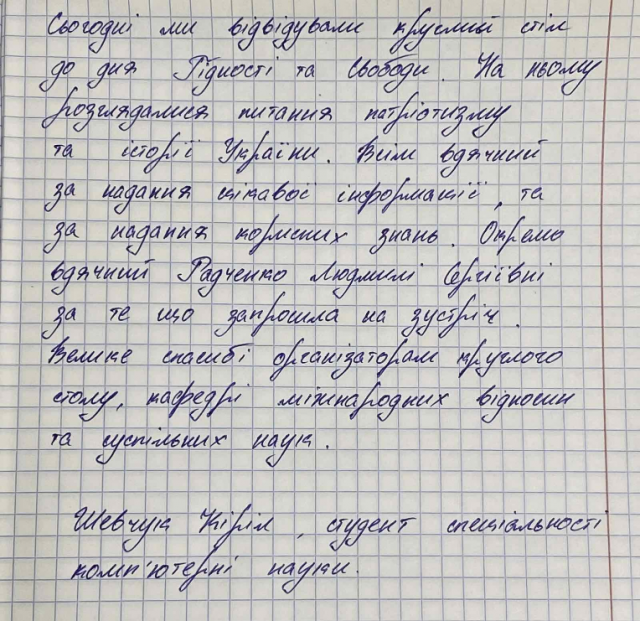 Сьогодні ми відвідували круглий стіл
до дня Гідності та Свободи. На ньому
розглядалися питання патріотизму
та історії України. Всім вдячний
за надання цікавої інформації, та
за надання корисних знань. Окремо
вдячний Радченко Людмилі Сергіївні
за те що запрошла на зустріч.
Велике спасибі організаторам круглого
столу, кафедрі міжнародних відносин
та суспільних наук.
Шевчук Кіріл, студент спеціальності
комп'ютерні науки.